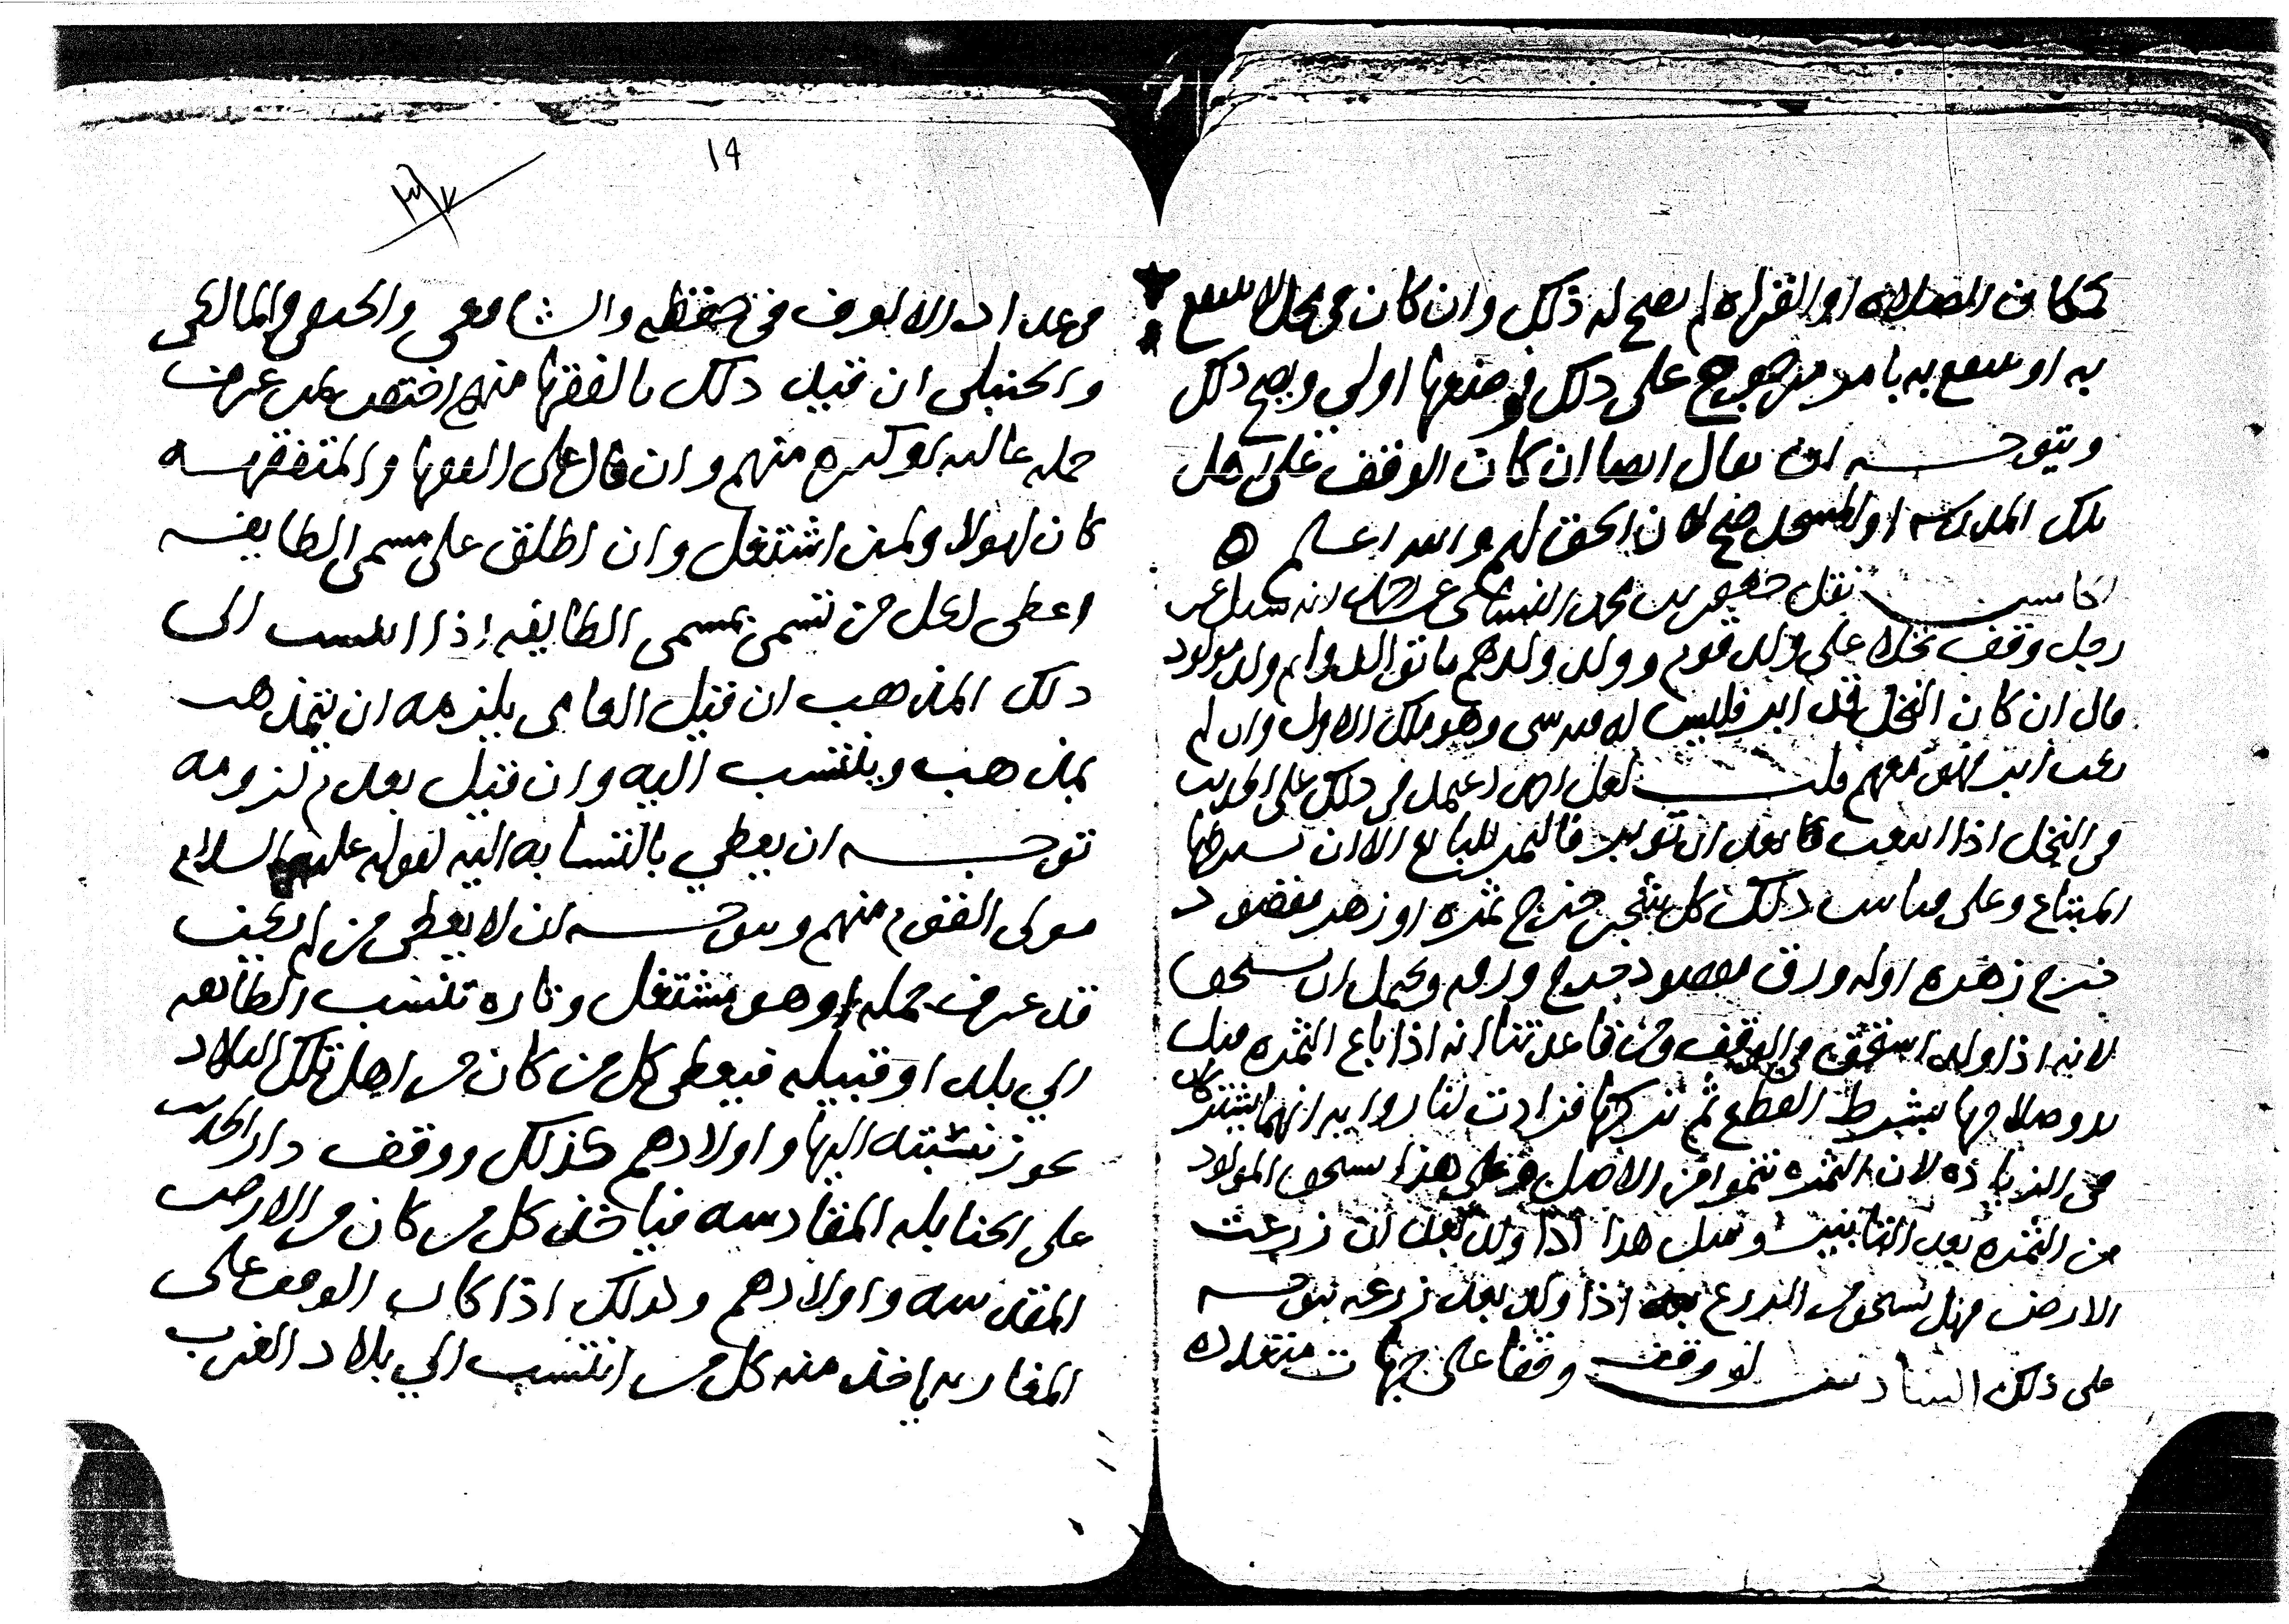 كمكان الصلاه او القراه لم يصح له ذلك وان كان في محل لا ينتفع
به او ينتفع به بامر مرجوح على ذلك فوضعها اولى ويصح ذلك
ويتوجه ان يقال ايضا ان كان الوقف على اهل
تلك المدرسه او المسجد صح لان الحق لهم والله اعلم
الخامس نقل جعفر بن محمد النسائي عن احمد انه سيل عن
رجل وقف نخله على ولد قوم وولد ولدهم ما توالدوا ثم ولد مولود
قال ان كان النخل قد ابر فليس له فيه شي وهو ملك الاول وان لم
يكن ابر فهو معهم قلت لعل احمد اعتمد في ذلك على الحديث
في النخل اذا ابيعت بعد ان توبر فالثمر للبايع الا ان يشترطها
المبتاع وعلى قياس ذلك كل شجر خرج ثمره او زهر مقصود
خرج زهره اوله ورق مقصود خرج ورقه ويحتمل ان يستحق
لانه اذا ولد استحق في الوقف ومن قاعدتنا انه اذا باع الثمره قبل
بدو صلاحها بشرط القطع ثم تركها فزادت لنا روايه انهما يشتركان
في الزياده لان الثمره تنموا من الاصل وعلى هذا يستحق المولود
من الثمره بعد التابير وقبل هذا اذا ولد بعد ان زرعت
الارض فهل يستحق من الزرع اذا ولد بعد زرعه يتوجه
على ذلك السادس لو وقف وقفا على جهات متعدده
14
من عداد الالوف في حفظه والشافعي والحنفي والمالكي
والحنبلي ان قيل ذلك بالفقها منهم اختص بمن عرف
جمله غالبه او كثيره منهم وان قال على الفقها والمتفقهه
كان لهولا ولمن اشتغل وان اطلق على مسمى الطايفه
اعطى لكل من تسمى بمسمى الطايفه اذا انتسب الى
ذلك المذهب ان قيل العامي يلزمه ان يتمذهب
بمذهب وينتسب اليه وان قيل بعدم لزومه
توجه ان يعطي بانتسابه اليه لقوله عليه السلام
مولى القوم منهم ويتوجه ان لا يعطى من لم يكن
قد عرف جمله او هو مشتغل وتاره تنتسب الطايفه
الي بلد او قبيله فيعطى كل من كان من اهل تلك البلاد
يجوز نسبته اليها واولادهم كذلك ووقف دار الحديث
على الحنابله المقادسه فياخذ كل من كان من الارض
المقدسه واولادهم وكذلك اذا كان الوقف على
المغاربه ياخذ منه كل من انتسب الي بلاد الغرب